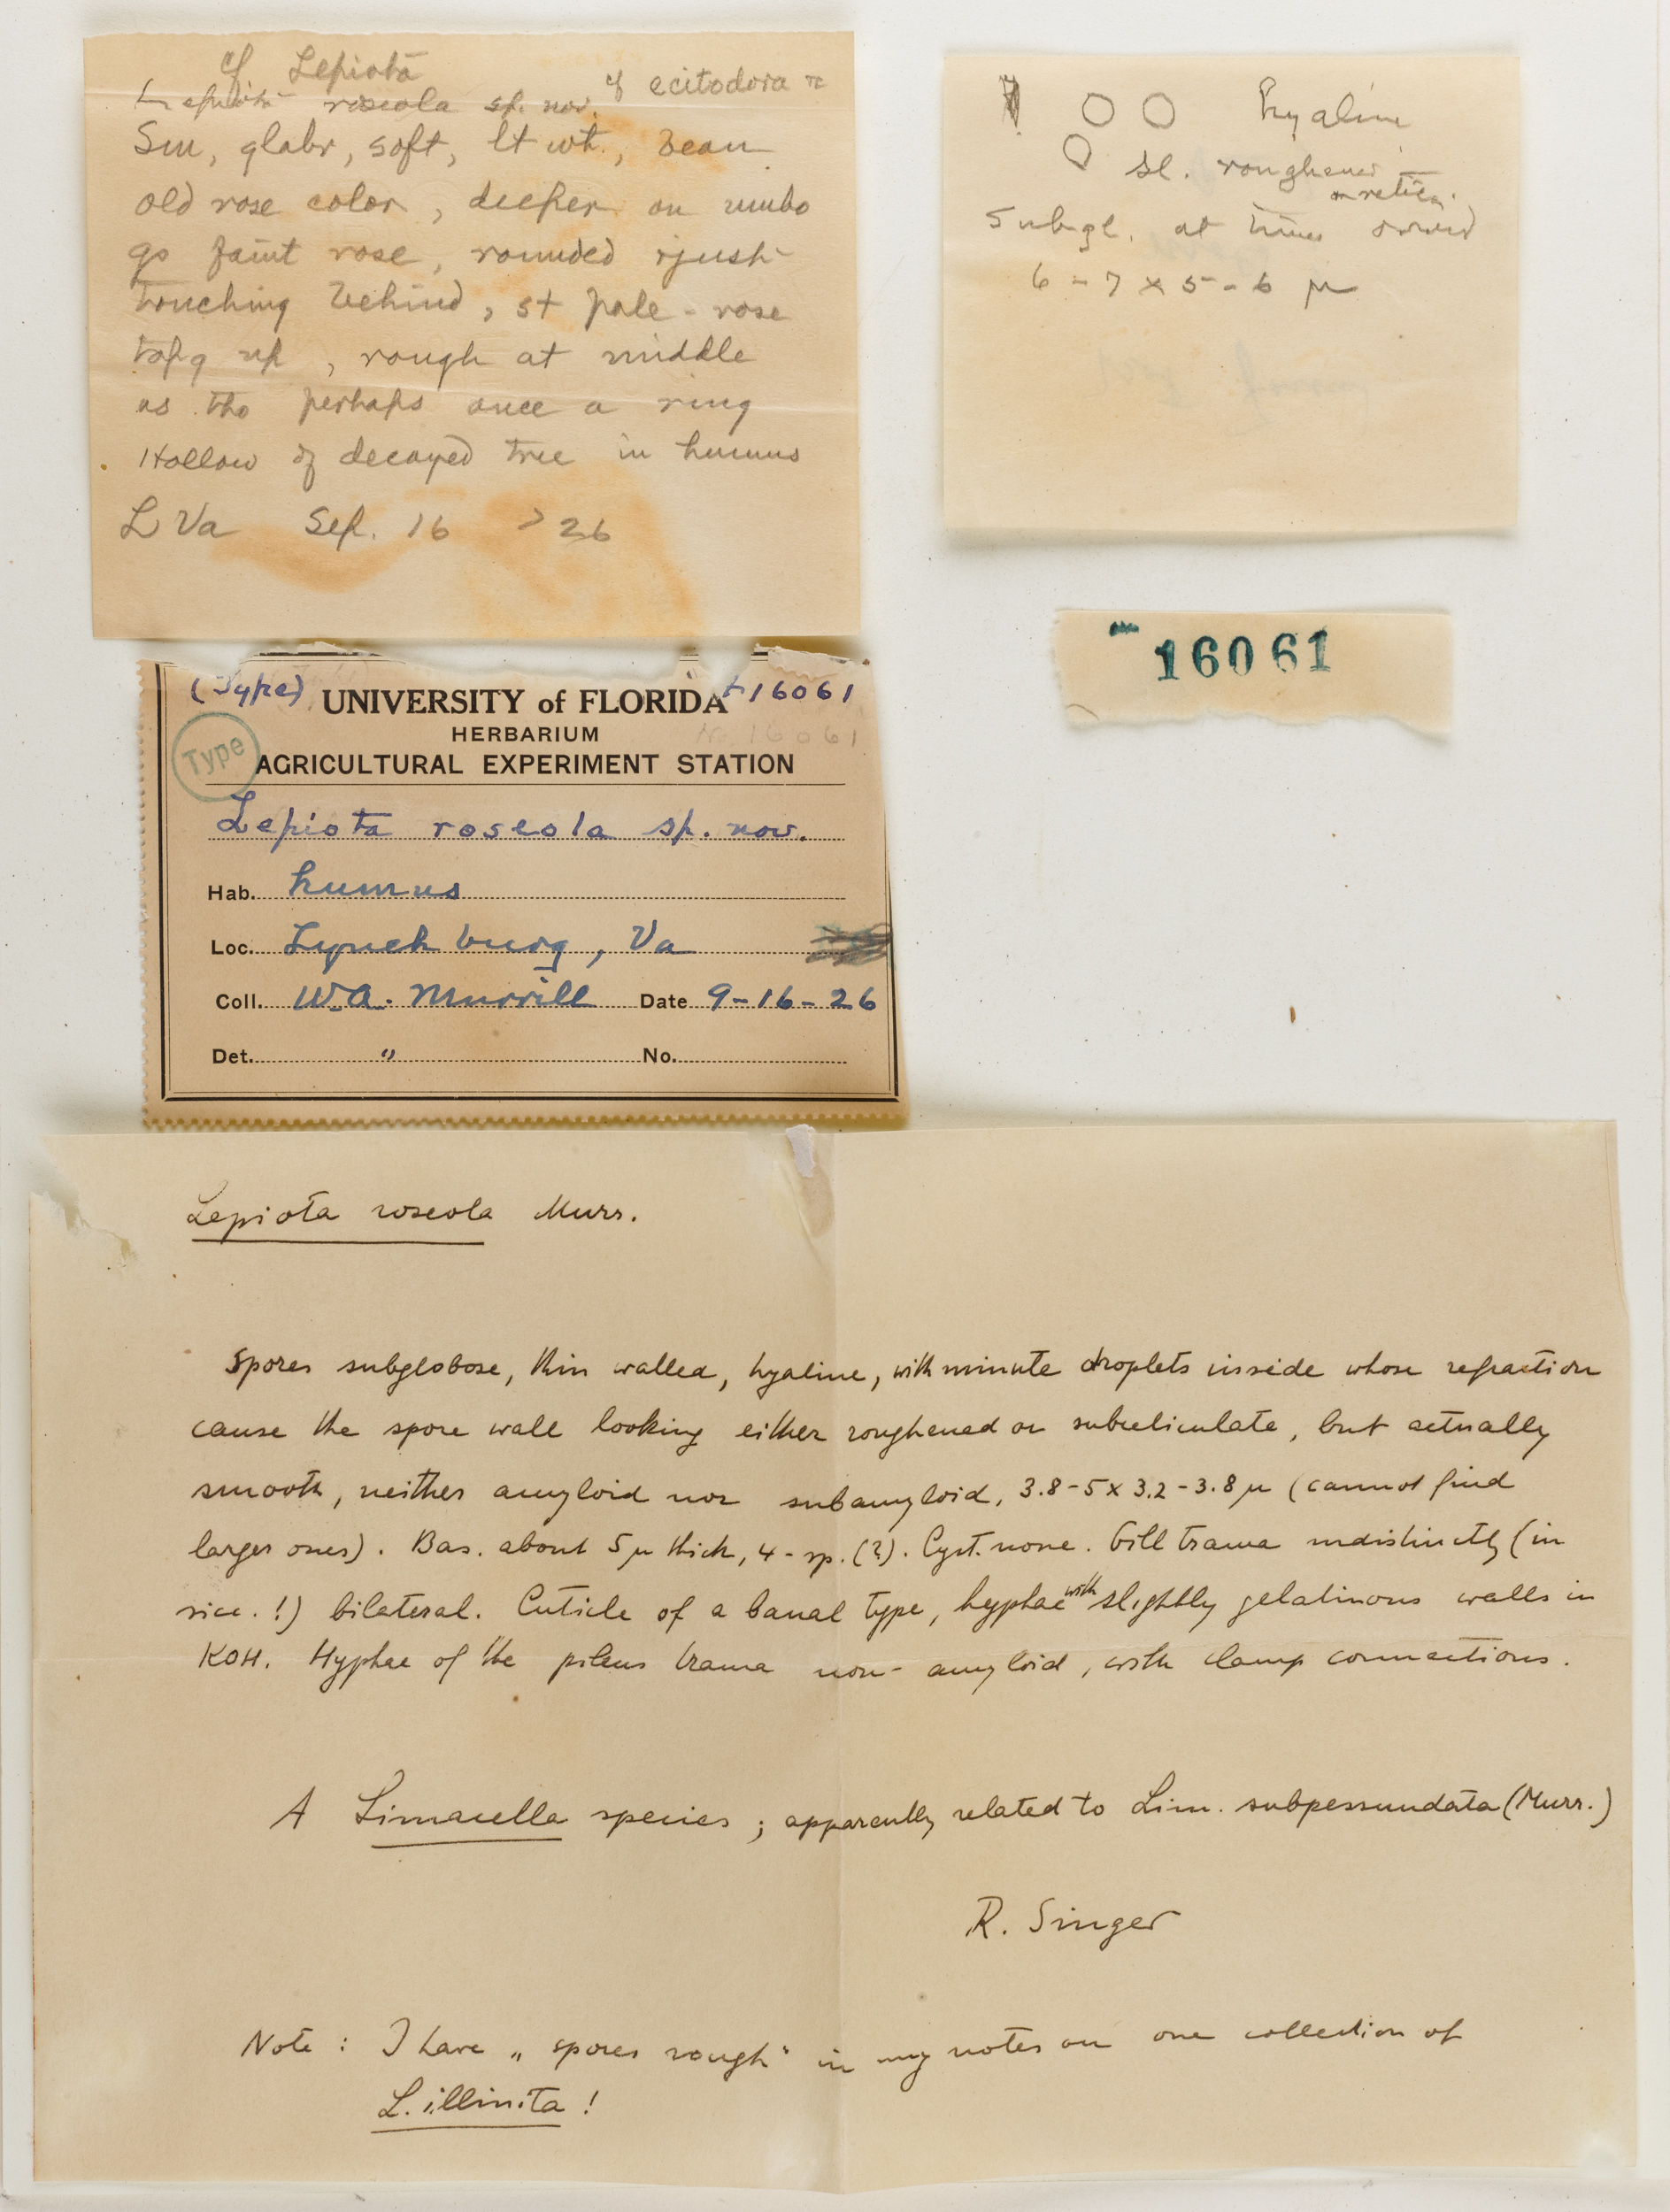 cf Lepiota
Lepiota roseola sp. nov. cf ecitodora
Sm, glabr, soft, lt wt.,
old rose color, deeper on umbo
gs faint rose, rounded & just
touching behind, st pale-rose
tap'g up, rough at middle
as tho perhaps once a ring
Hollow of decayed tree in humus
L Va Sep. 16 '26
hyaline
sl. roughened
or retic.
Subgl. at times ovoid
6-7 x 5-6 µ
16061
(Type) F16061
UNIVERSITY of FLORIDA
HERBARIUM No. 16061
Type
AGRICULTURAL EXPERIMENT STATION
Lepiota roseola sp. nov.
Hab. humus
Loc. Lynchburg, Va
Coll. W.A. Murrill Date 9-16-26
Det. " No.
Lepiota roseola Murr.
Spores subglobose, thin walled, hyaline, with minute droplets inside whose refraction
cause the spore wall looking either roughened or subreticulate, but actually
smooth, neither amyloid nor subamyloid, 3.8-5 x 3.2-3.8 µ (cannot find
larger ones). Bas. about 5 µ thick, 4-sp. (?). Cyst. none. Gill trama indistinctly (in
sicc.!) bilateral. Cuticle of a banal type, hyphae with slightly gelatinous walls in
KOH. Hyphae of the pileus trama non-amyloid, with clamp connections.
A Limacella species; apparently related to Lim. subpessundata (Murr.)
R. Singer
Note: I have „spores rough" in my notes on one collection of
L. illinita!